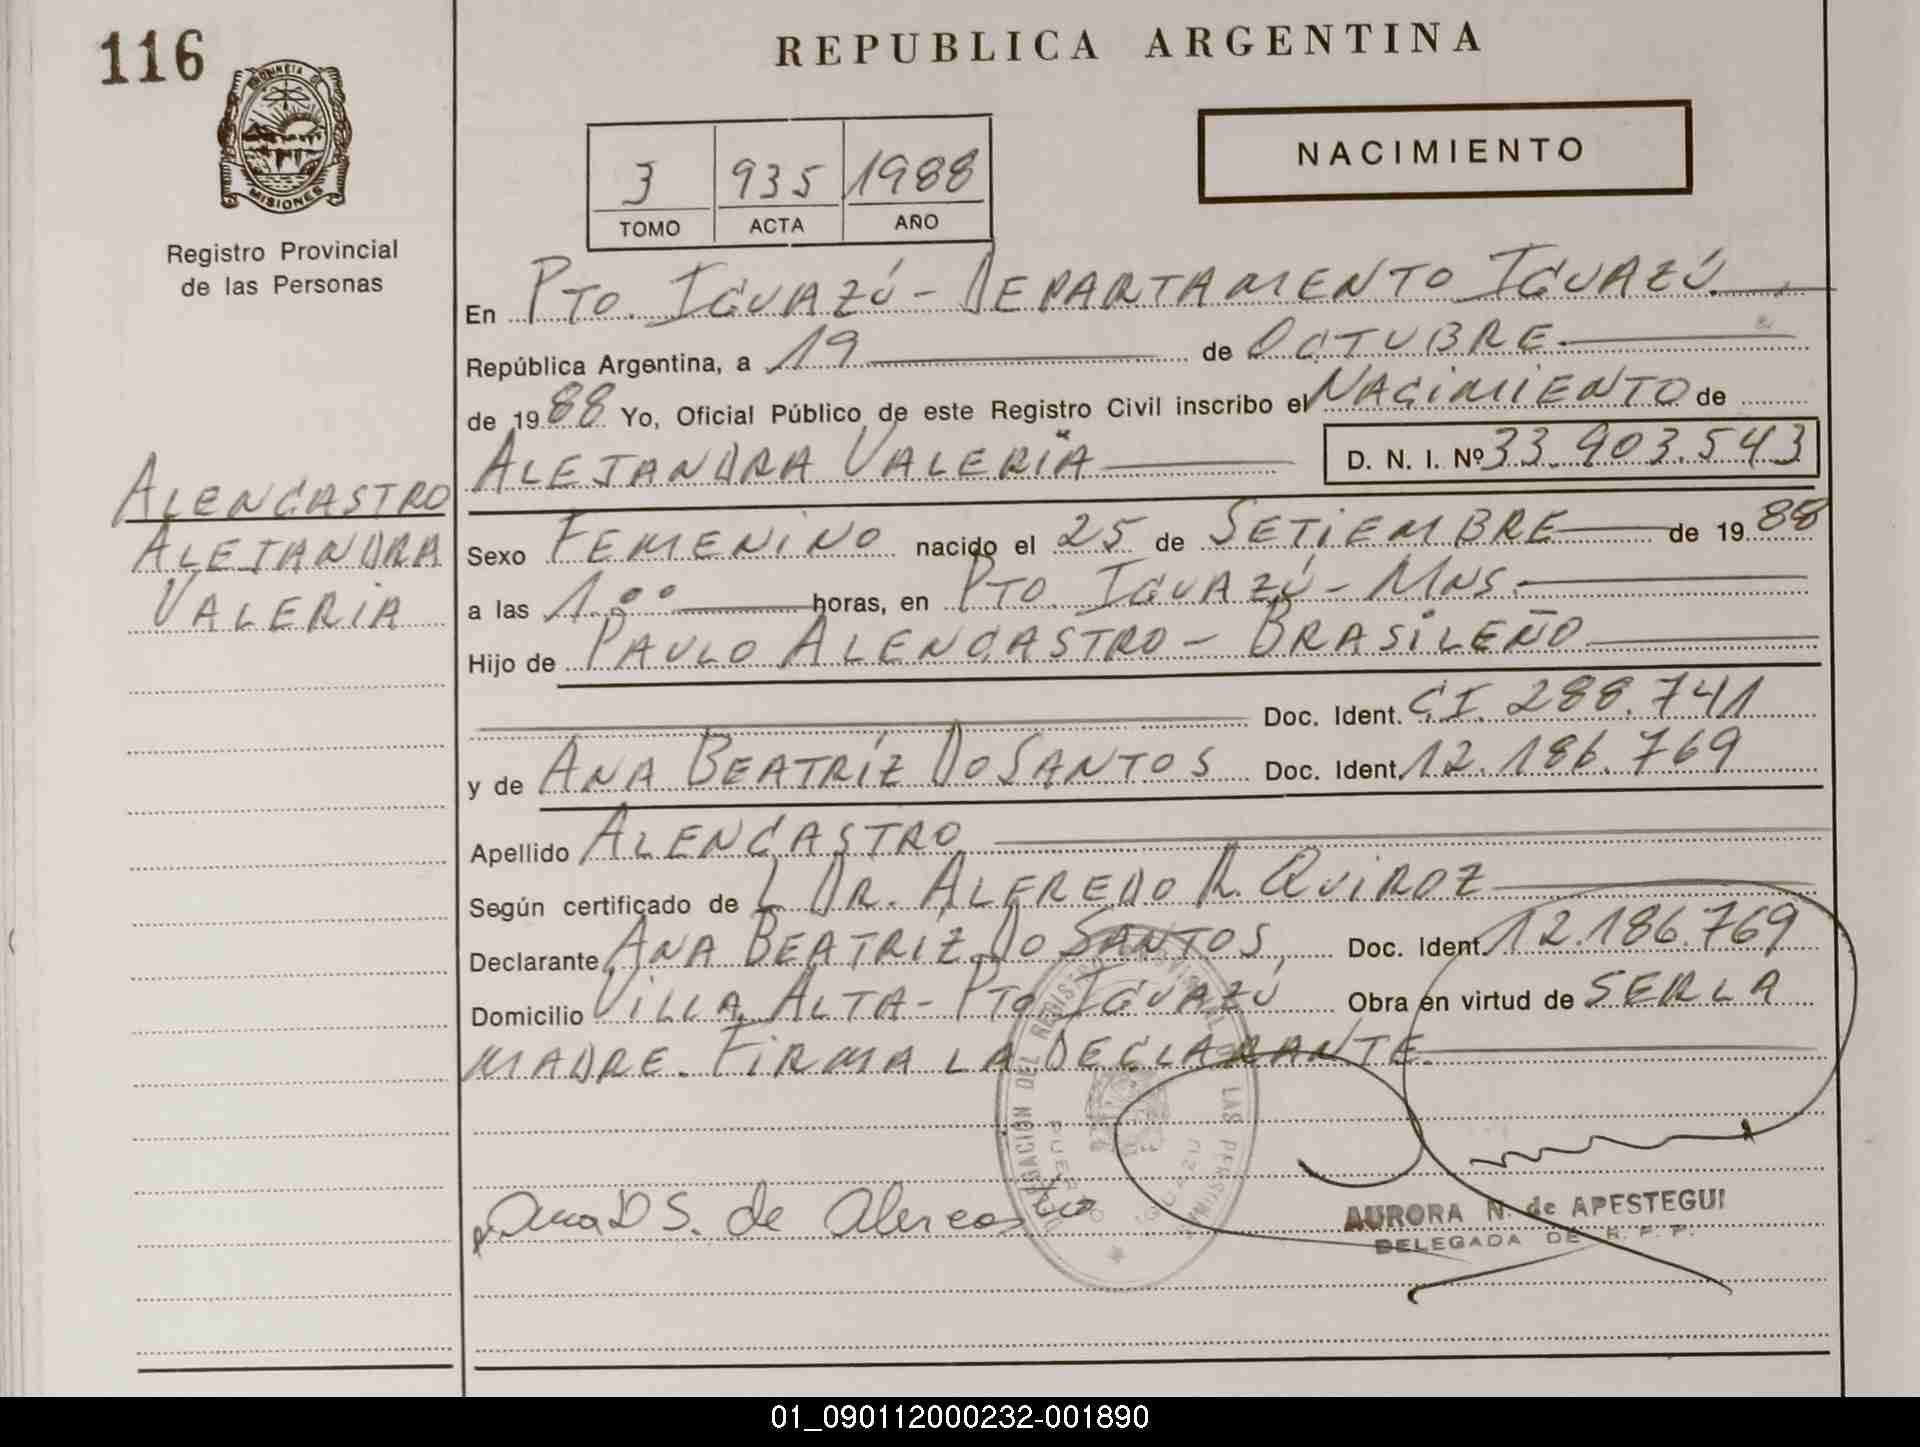 116
REPUBLICA ARGENTINA
PROVINCIA D
MISIONES
Registro Provincial
de las Personas
3 935 1988
TOMO ACTA AÑO
NACIMIENTO
En PTO. IGUAZÚ - DEPARTAMENTO IGUAZÚ.
República Argentina, a 19 de OCTUBRE.
de 1988 Yo, Oficial Público de este Registro Civil inscribo el NACIMIENTO de
ALEJANDRA VALERIA D. N. I. Nº 33.903.543
ALENCASTRO
ALEJANDRA
VALERIA
Sexo FEMENINO nacido el 25 de SETIEMBRE de 1988
a las 1.00 horas, en PTO. IGUAZÚ - MNS.
Hijo de PAULO ALENCASTRO - BRASILEÑO
Doc. Ident. CI. 288.741
y de ANA BEATRÍZ DO SANTOS Doc. Ident. 12.186.769
Apellido ALENCASTRO
Según certificado de L DR. ALFREDO R. QUIROZ
Declarante ANA BEATRÍZ DO SANTOS, Doc. Ident. 12.186.769
Domicilio VILLA ALTA - PTO IGUAZÚ Obra en virtud de SER LA
MADRE. FIRMA LA DECLARANTE.
DELEGACION DEL REGISTRO PROVINCIAL DE LAS PERSONAS
PUERTO IGUAZU
Ana D S. de Alencastro
AURORA N. de APESTEGUI
DELEGADA DE R. P. P.
01_090112000232-001890